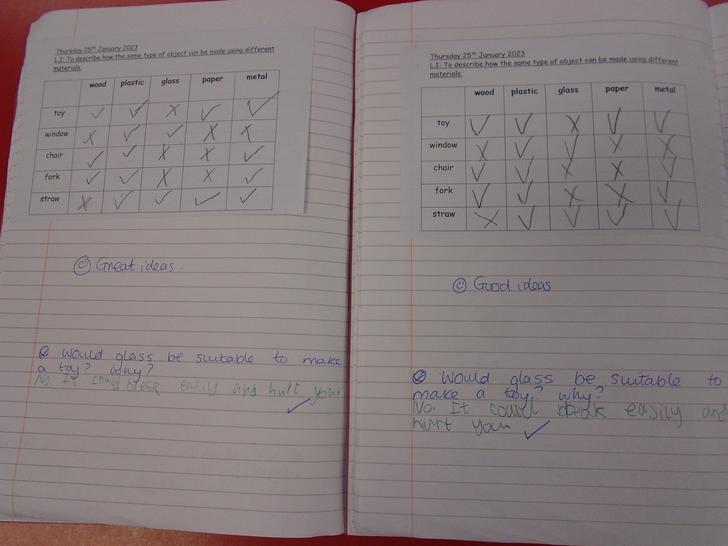 Thursday 25th January 2023
L.I: To describe how the same type of object can be made using different
materials.
wood plastic glass paper metal
toy ✓ ✓ X ✓ ✓
window X ✓ ✓ X X
chair ✓ ✓ X X ✓
fork ✓ ✓ X X ✓
straw X ✓ ✓ ✓ ✓
Great ideas
Would glass be suitable to make
a toy? why?
No. It could break easily and hurt you
Thursday 25th January 2023
L.I: To describe how the same type of object can be made using different
materials.
wood plastic glass paper metal
toy ✓ ✓ X ✓ ✓
window X ✓ ✓ X X
chair ✓ ✓ X X ✓
fork ✓ ✓ X X ✓
straw X ✓ ✓ ✓ ✓
Good ideas
Would glass be suitable to
make a toy? why?
No. It could break easily and
hurt you